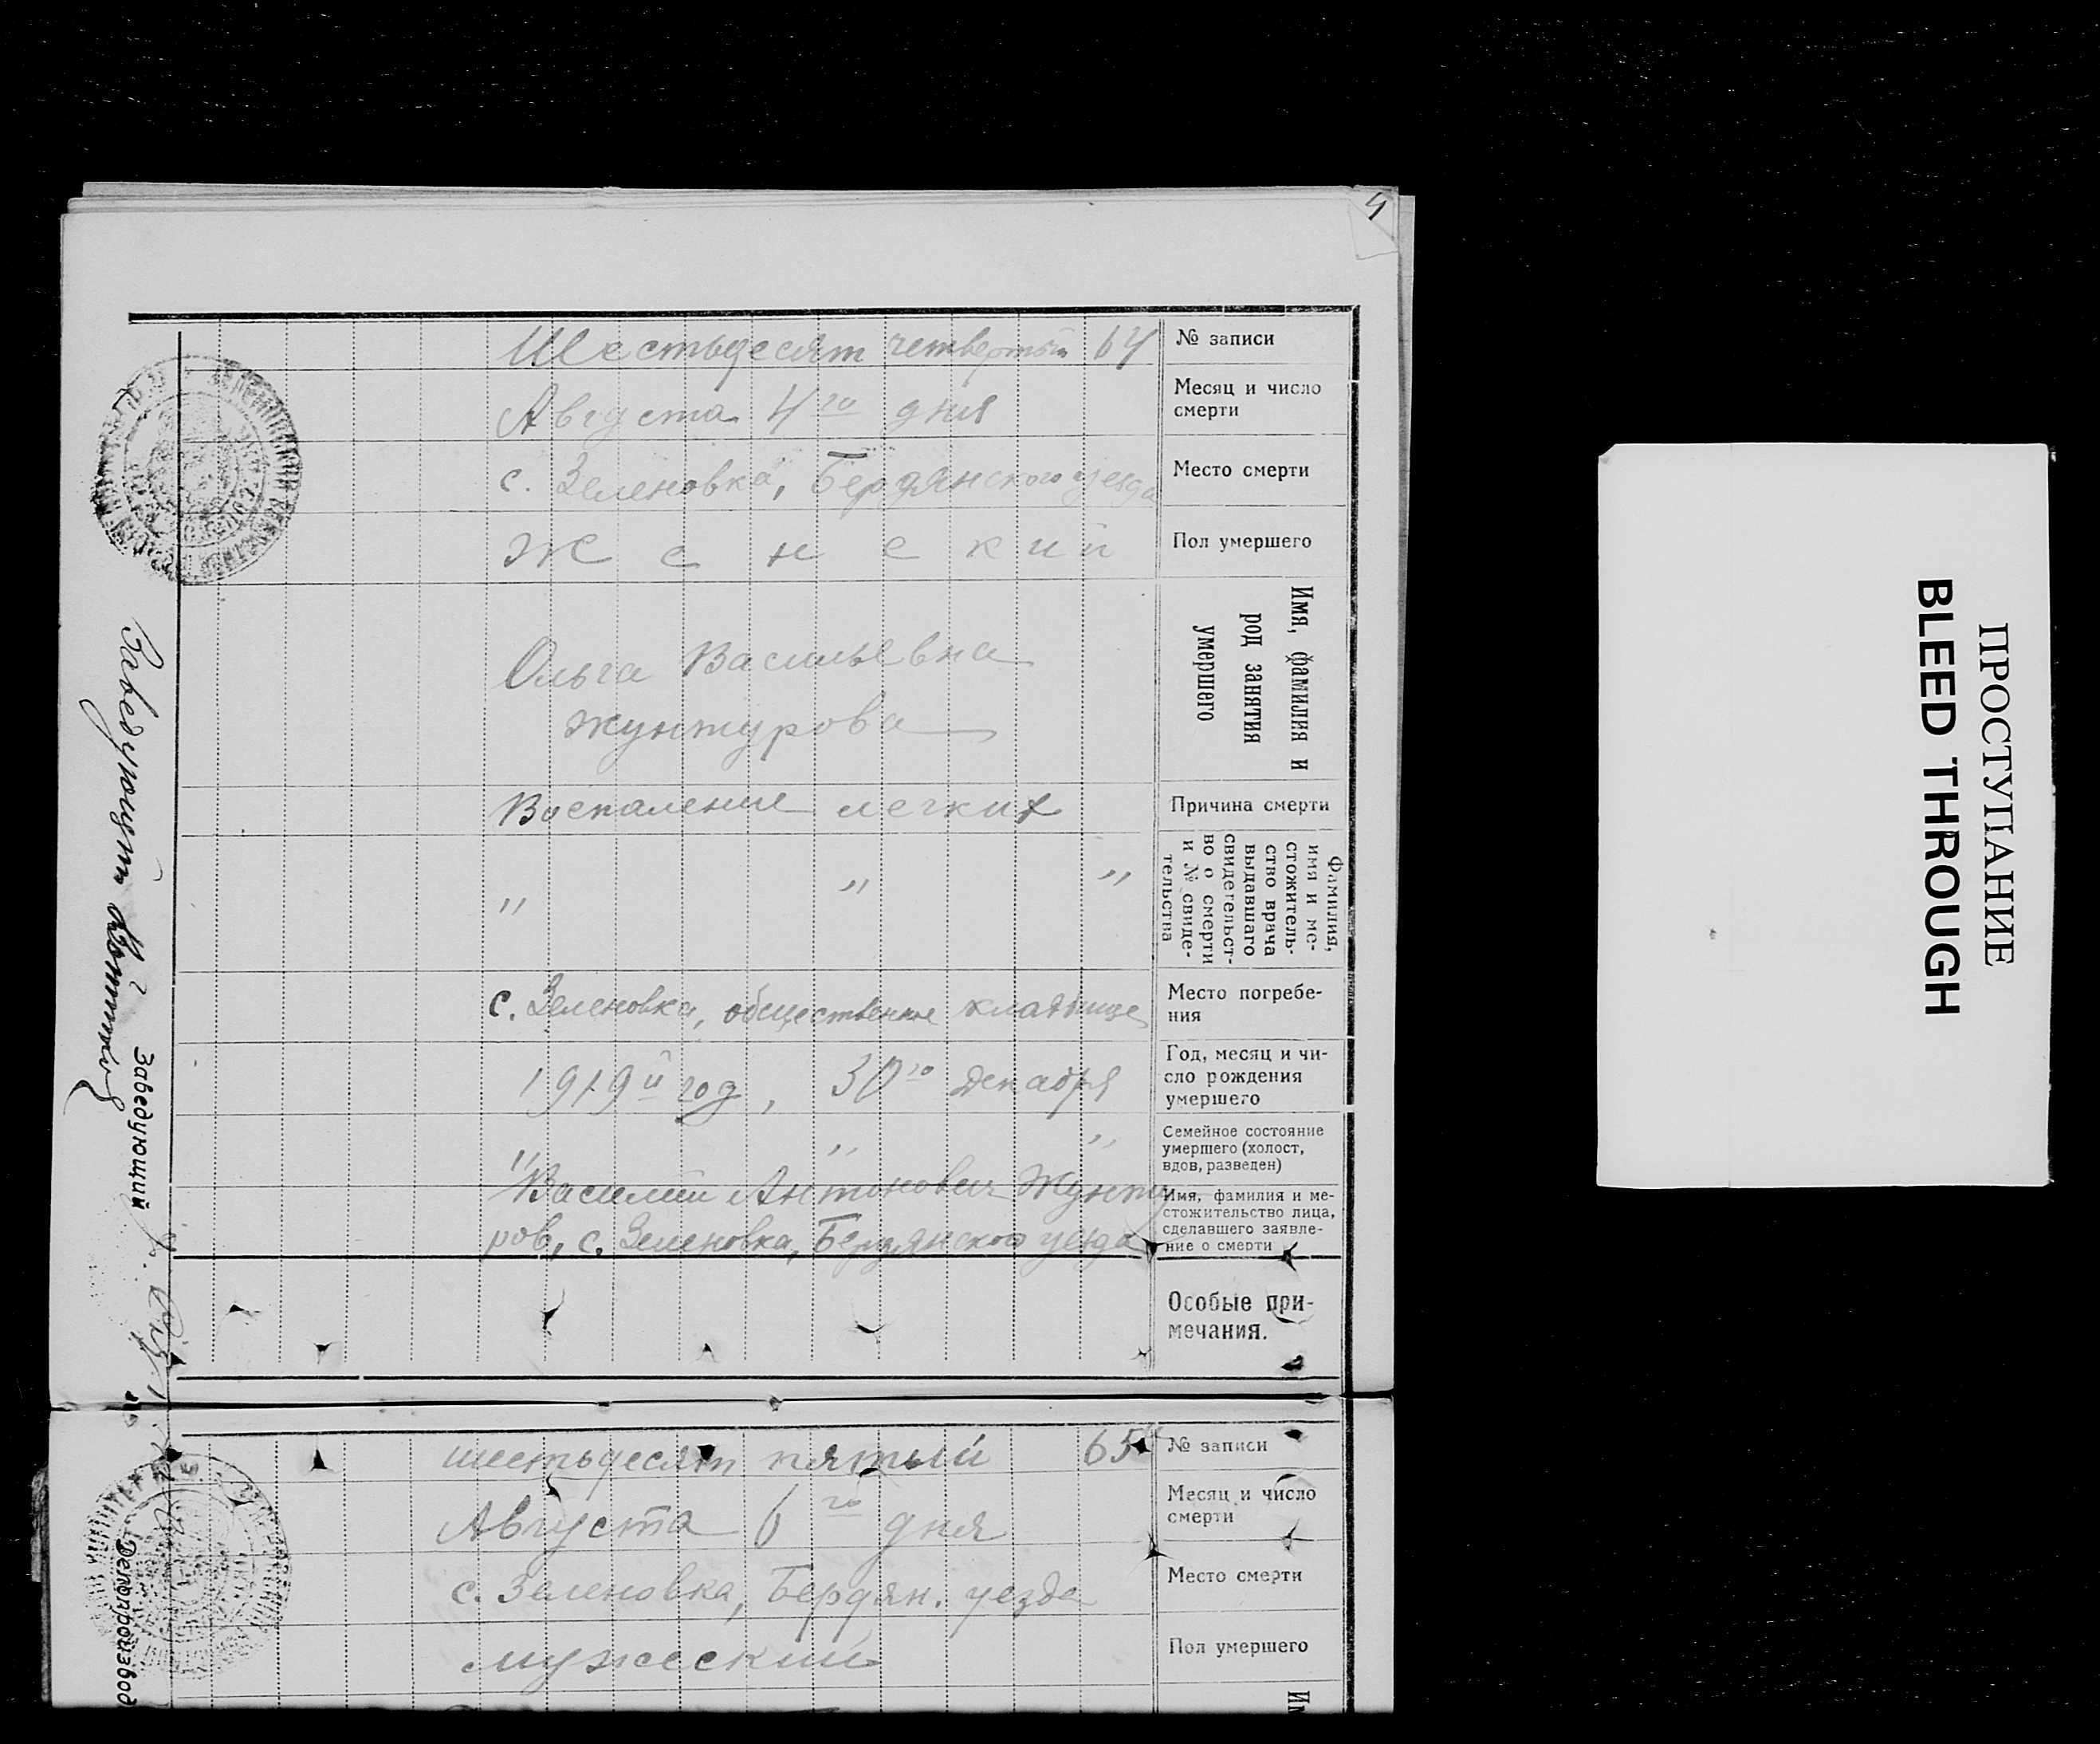 4
Шестьдесят четвертый 64
№ записи
Августа 4го дня
Месяц и число
смерти
с. Зеленовка, Бердянского уезда
Место смерти
Женский
Пол умершего
Ольга Васильевна
Жунтурова
Имя, фамилия и
род занятия
умершего
Воспаление легких
Причина смерти
" " "
Фамилия,
имя и ме-
стожитель-
ство врача
выдавшего
свидетельст-
во о смерти
и № свиде-
тельства
с. Зеленовка, общественное кладбище
Место погребе-
ния
1919й год, 30го декабря
Год, месяц и чи-
сло рождения
умершего
" " "
Семейное состояние
умершего (холост,
вдов, разведен)
Василий Антонович Жунту
ров, с. Зеленовка, Бердянского уезда
Имя, фамилия и ме-
стожительство лица,
сделавшего заявле-
ние о смерти
Особые при-
мечания.
Заведующий
Заведующий
шестьдесят пятый 65
№ записи
Августа 6го дня
Месяц и число
смерти
с. Зеленовка, Бердян. уезда
Место смерти
мужеский
Пол умершего
Делопроизвод
ПРОСТУПАНИЕ
BLEED THROUGH